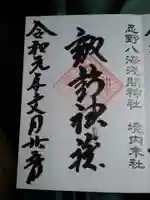 忍野八海浅間神社 境内末社
諏訪神
令和元年文月廿日